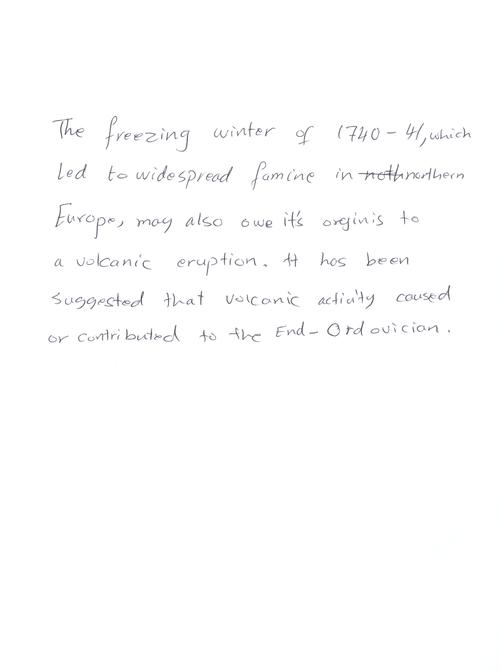 The freezing winter of 1740-41, which
led to widespread famine in noth northern
Europe, may also owe it's orginis to
a volcanic eruption. It has been
suggested that volcanic activity caused
or contributed to the End-Ordovician.